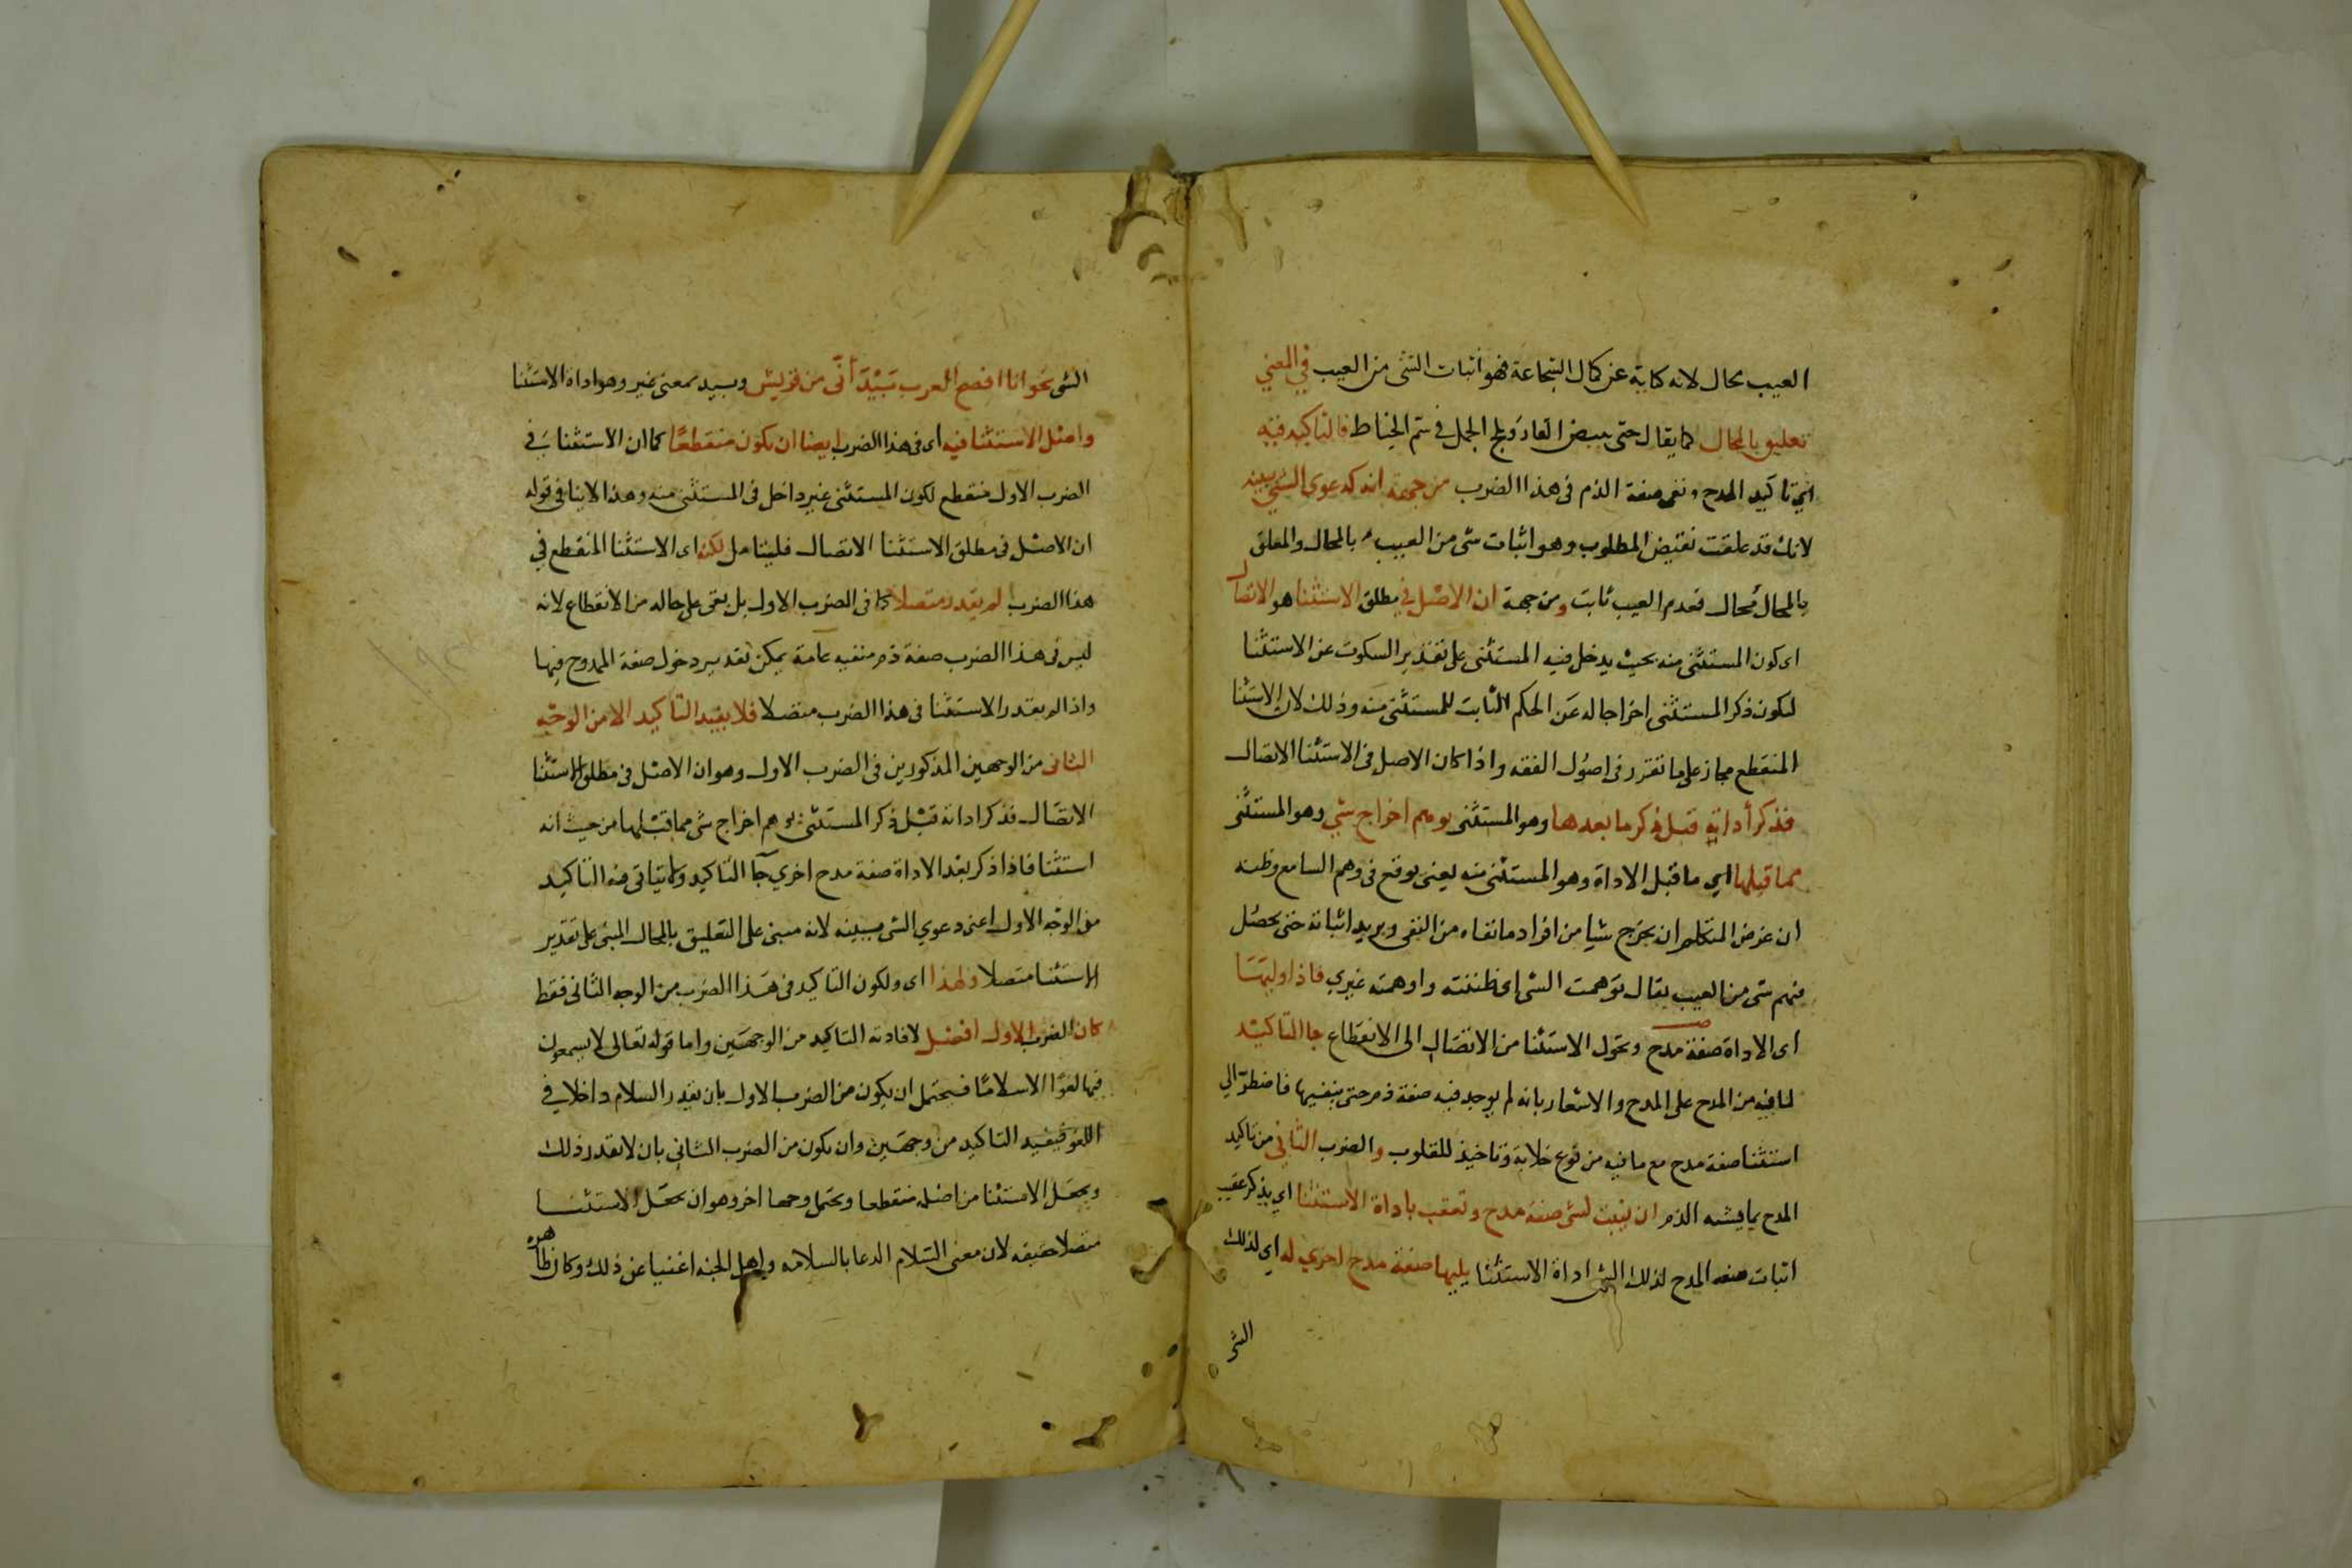 العيب محال لانه كناية عن كمال الشجاعة فهو اثبات الشئ من العيب في المعني
تعليق بالمحال كما يقال حتى يبيض القار ويلج الجمل في سم الخياط فالتاكيد فيه
اي تاكيد المدح ونفي صفة الذم في هذا الضرب من جهة انه كدعوي الشئ ببينه
لانك قد علقت نقيض المطلوب وهو اثبات شى من العيب بالمحال والمعلق
بالمحال محال فعدم العيب ثابت ومن جهة ان الاصل في مطلق الاستثنا هو الاتصال
اى كون المستثنى منه بحيث يدخل فيه المستثنى على تقدير السكوت عن الاستثنا
ليكون ذكر المستثنى اخراجا له عن الحكم الثابت للمستثنى منه وذلك لان الاستثنا
المنقطع مجاز على ما تقرر فى اصول الفقه واذا كان الاصل فى الاستثنا الاتصال
فذكر أداته قبل ذكر ما بعدها وهو المستثنى يوهم اخراج شي وهو المستثنى
مما قبلها اي ما قبل الاداة وهو المستثنى منه يعنى يوقع فى وهم السامع وظنه
ان غرض المتكلم ان يخرج شيا من افراد ما نفاه من النفى ويريد اثباته حتى يحصل
فيهم شى من العيب يقال توهمت الشى اى ظننته واوهمته غيري فاذا وليتها
اى الاداة صفة مدح وتحول الاستثنا من الاتصال الى الانقطاع جا التاكيد
لما فيه من المدح على المدح والاشعار بانه لم يوجد فيه صفة ذم حتى ينفيها فاضطر الي
استثنا صفة مدح مع ما فيه من نوع خلابة وتاخيذ للقلوب والضرب الثانى من تاكيد
المدح بما يشبه الذم ان يثبت لشى صفة مدح وتعقب باداة الاستثنا اي يذكر عقيب
اثبات صفه المدح لذلك الشى اداة الاستثنا يليها صفة مدح اخري له اى لذلك
الشى
الشى نحو انا افصح العرب بَيْدَ أنّى من قريش وبيد بمعنى غير وهو اداة الاستثنا
واصل الاستثنا فيه اى فى هذا الضرب ايضا ان يكون منقطعًا كما ان الاستثنا فى
الضرب الاول منقطع لكون المستثنى غير داخل فى المستثنى منه وهذا لاينافى قوله
ان الاصل فى مطلق الاستثنا الاتصال فليتامل لكنه اى الاستثنا المنقطع في
هذا الضرب لم يقدر متصلا كما فى الضرب الاول بل بقى على حاله من الانقطاع لانه
ليس فى هذا الضرب صفة ذم منفيه عامة يمكن تقدير دخول صفة المدح فيها
واذا لم يقدر الاستثنا فى هذا الضرب متصلا فلا يفيد التاكيد الا من الوجه
الثانى من الوجهين المذكورين فى الضرب الاول وهو ان الاصل فى مطلق الاستثنا
الاتصال فذكر اداته قبل ذكر المستثنى يوهم اخراج شى مما قبلها من حيث انه
استثنا فاذا ذكر بعد الاداة صفة مدح اخري جآ التاكيد ولا يتاتى فيه التاكيد
من الوجه الاول اعنى دعوي الشى ببينه لانه مبنى على التعليق بالمحال المبنى على تقدير
الاستثنا متصلا ولهذا اى ولكون التاكيد فى هذا الضرب من الوجه الثانى فقط
كان الضرب الاول افضل لافادته التاكيد من الوجهين واما قوله تعالى لا يسمعون
فيها لغوًا الا سلامًا فيحتمل ان يكون من الضرب الاول بان يقدر السلام داخلا في
اللغو فيفيد التاكيد من وجهين وان يكون من الضرب الثانى بان لا يقدر ذلك
ويجعل الاستثنا من اصله منقطعا ويحتمل وجها اخر وهو ان يجعل الاستثنا
متصلا حقيقه لان معنى السلام الدعا بالسلامه واهل الجنه اغنيا عن ذلك وكان ظاهره